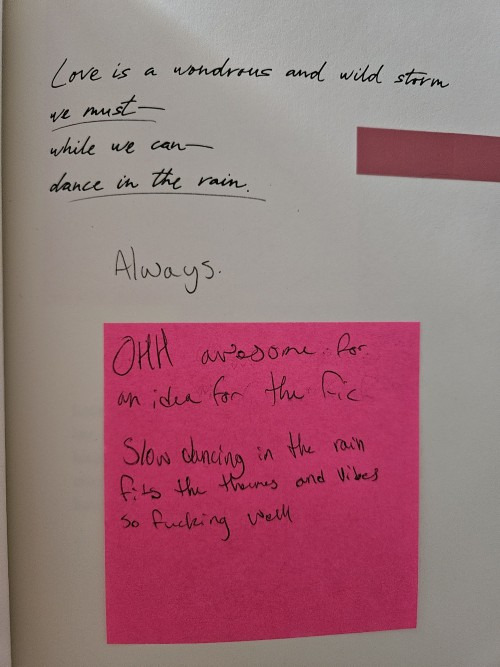 Love is a wondrous and wild storm
we must—
while we can—
dance in the rain.
Always.
OHH awesome for
an idea for the fic
Slow dancing in the rain
fits the themes and vibes
so fucking well